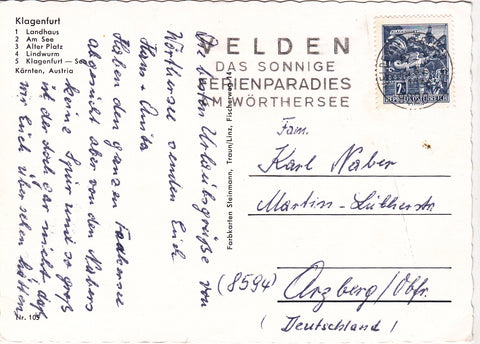 Klagenfurt
1 Landhaus
2 Am See
3 Alter Platz
4 Lindwurm
5 Klagenfurt — See
Kärnten, Austria
VELDEN
DAS SONNIGE
FERIENPARADIES
AM WÖRTHERSEE
Die besten Urlaubsgrüße von
Wörthersee senden Euch
Hans + Anita
Haben den ganzen Faakersee
abgesucht aber von den Nabers
keine Spur und so groß
ist der doch gar nicht daß
wir Euch übersehen hätten
Nr. 105
Farbkarten Steinmann, Traun/Linz, Fischerweg 14
Fam.
Karl Naber
Martin-Lutherstr
(8594) Arzberg/Obfr.
(Deutschland)